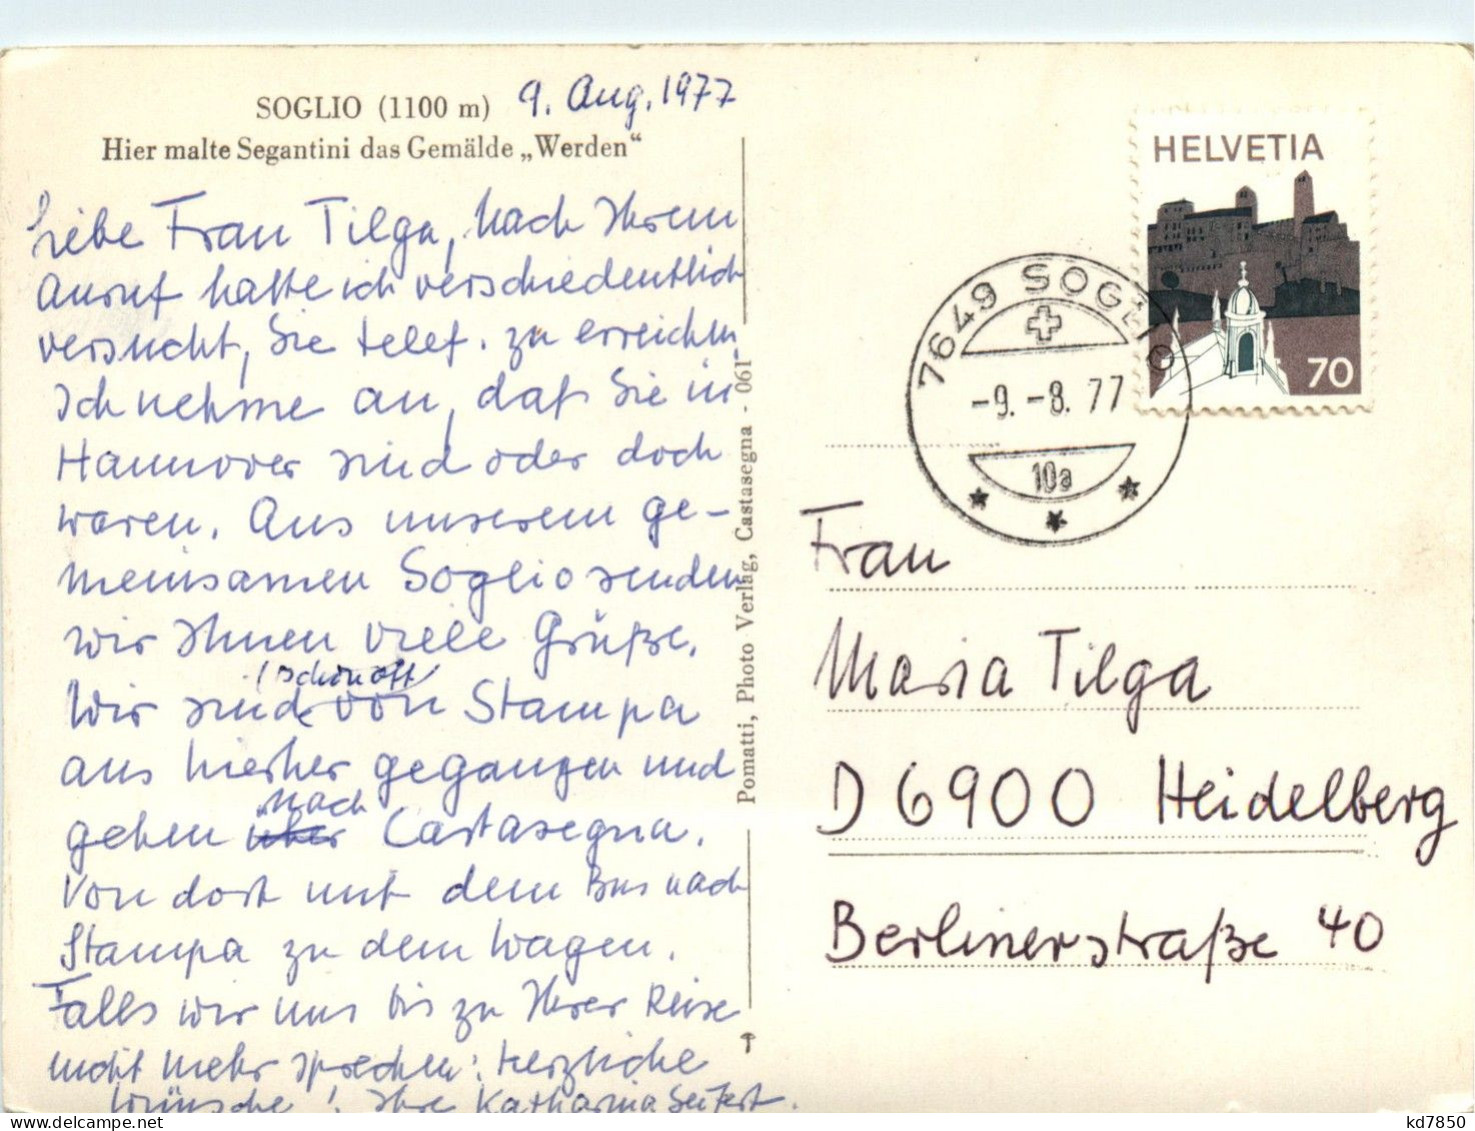 SOGLIO (1100 m) 9. Aug. 1977
Hier malte Segantini das Gemälde „Werden“
Liebe Frau Tilga, Nach Ihrem
Anruf hatte ich verschiedentlich
versucht, Sie telef. zu erreichen.
Ich nehme an, daß Sie in
Hannover sind oder doch
waren. Aus unserem ge-
meinsamen Soglio senden
wir Ihnen viele Grüße.
(schon oft)
Wir sind von Stampa
aus hierher gegangen und
gehen nach Castasegna.
Von dort mit dem Bus nach
Stampa zu dem Wagen.
Falls wir uns bis zu Ihrer Reise
nicht mehr sprechen: herzliche
Wünsche! Ihre Katharina Seifert.
Pomatti, Photo Verlag, Castasegna - 061
HELVETIA
70
7649 SOGLIO
-9.-8.77
10a
Frau
Maria Tilga
D 6900 Heidelberg
Berlinerstraße 40
kd7850